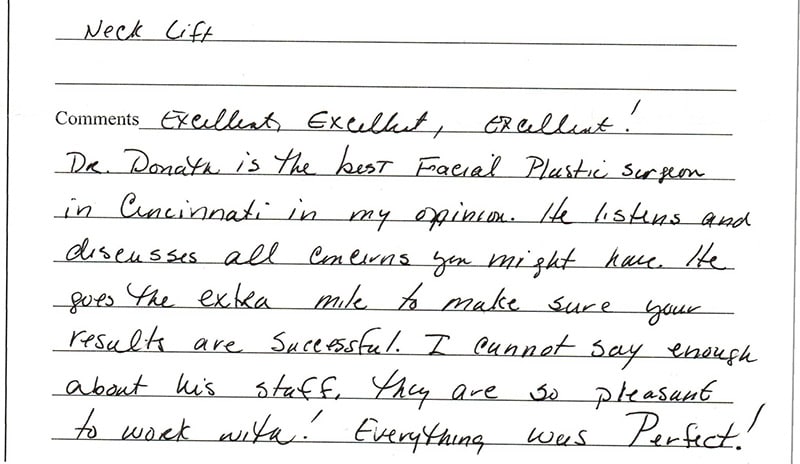 Neck Lift
Comments Excellent, Excellent, Excellent!
Dr. Donath is the best Facial Plastic surgeon
in Cincinnati in my opinion. He listens and
discusses all concerns you might have. He
goes the extra mile to make sure your
results are successful. I cannot say enough
about his staff. They are so pleasant
to work with! Everything was Perfect!